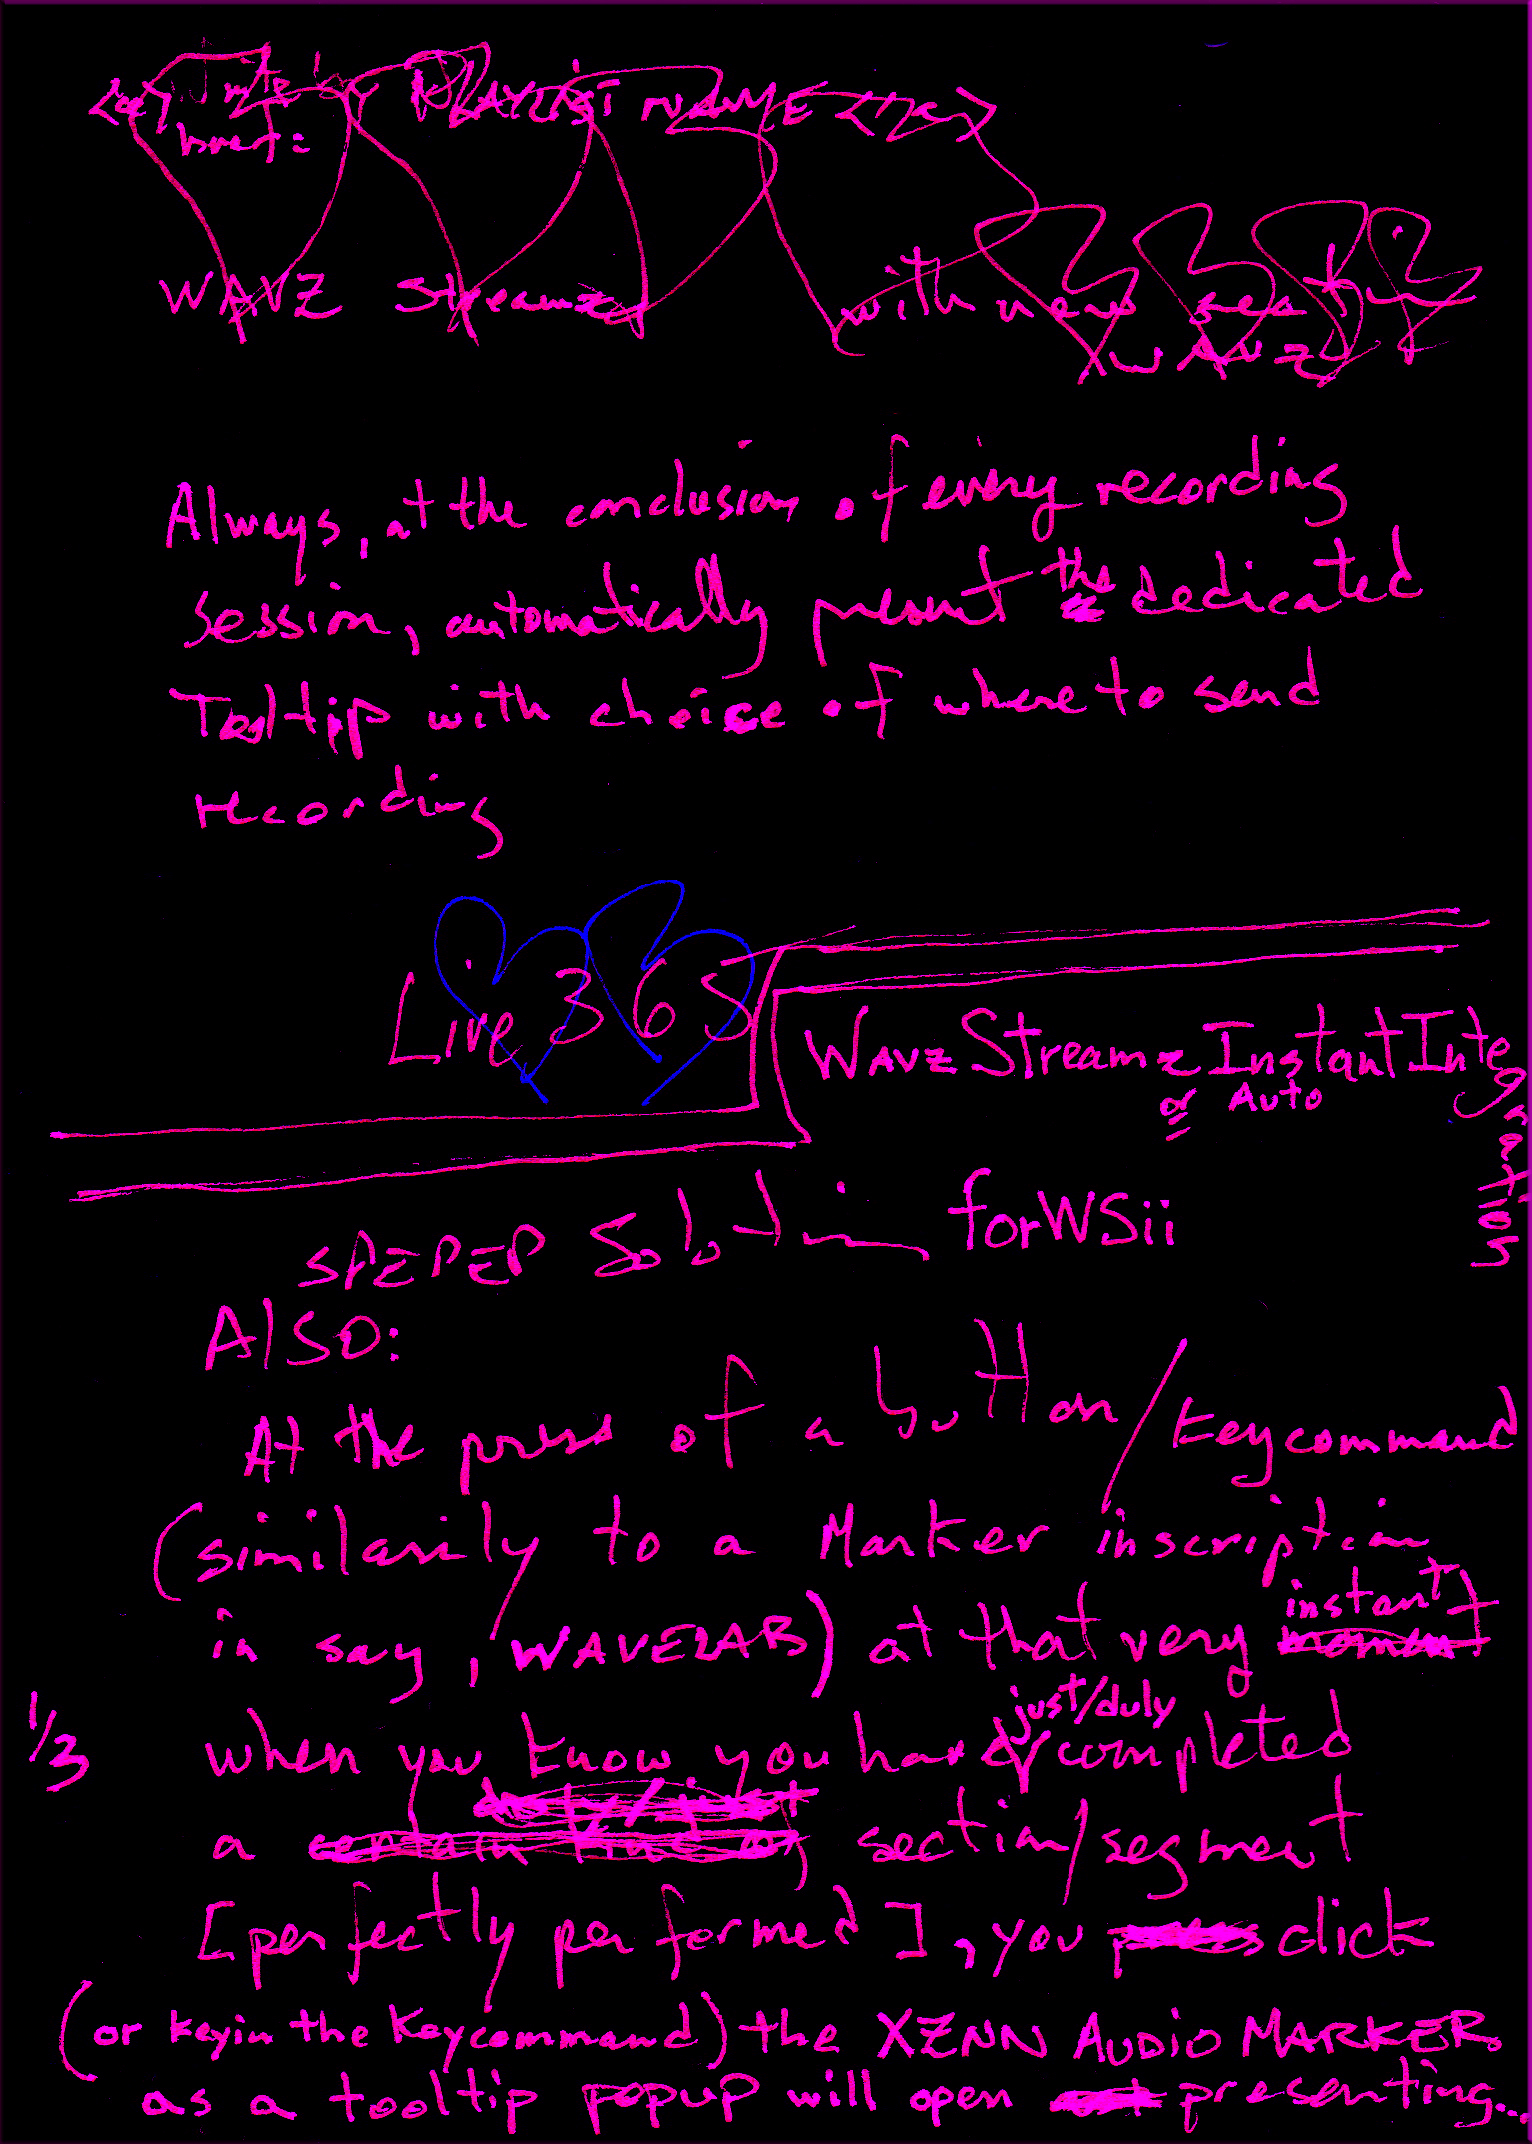 PLAYLIST NAME
WAVZ Streamz with new seα
WAVZ
Always, at the conclusion of every recording
session, automatically present the dedicated
Tooltip with choice of where to send
recording
Live 365
WAVZ Streamz Instant Integration
or Auto
SPEPEP Solution for WSii
AlSO:
At the press of a button/keycommand
(similarily to a Marker inscription
in say, WAVELAB) at that very instant
moment
just/duly
1/3 when you know you have completed
a certain kind of section/segment
[perfectly performed], you press click
(or keyin the Keycommand) the XZNN AUDIO MARKER
as a tooltip popup will open presenting...